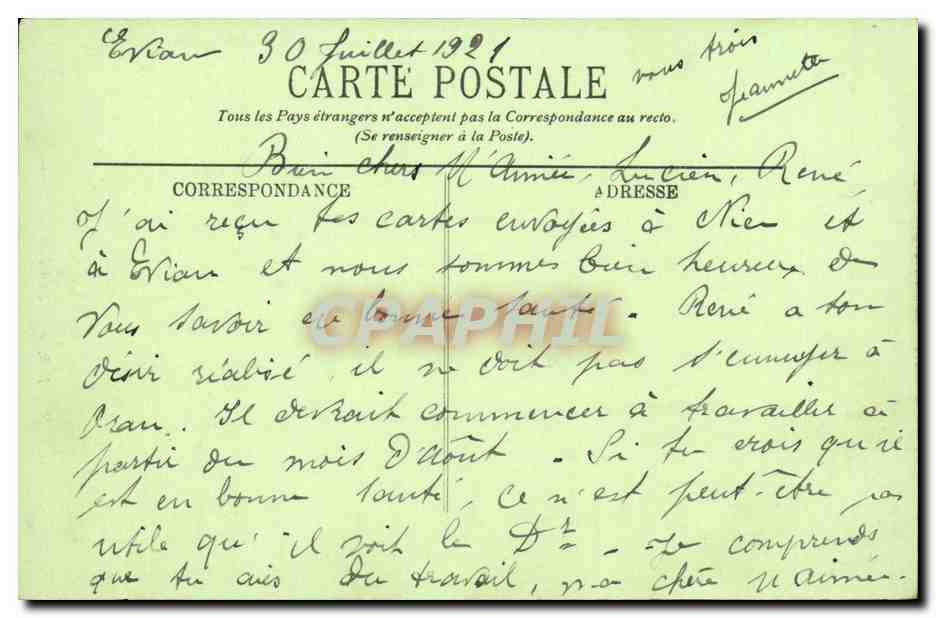 Evian 30 Juillet 1921
vous trois
Jeannette
CARTE POSTALE
Tous les Pays étrangers n'acceptent pas la Correspondance au recto.
(Se renseigner à la Poste).
Bien chers M'Aimée, Lucien, René,
CORRESPONDANCE
ADRESSE
J'ai reçu tes cartes envoyées à Nice et
à Evian et nous sommes bien heureux de
vous savoir en bonne santé. René a son
désir réalisé, il ne doit pas s'ennuyer à
Oran. Il devrait commencer à travailler à
partir du mois d'Août. Si tu crois qu'il
est en bonne santé, ce n'est peut-être pas
utile qu'il voit le Dr. Je comprends
que tu aies du travail, ma chère M'Aimée.
CPAPHIL